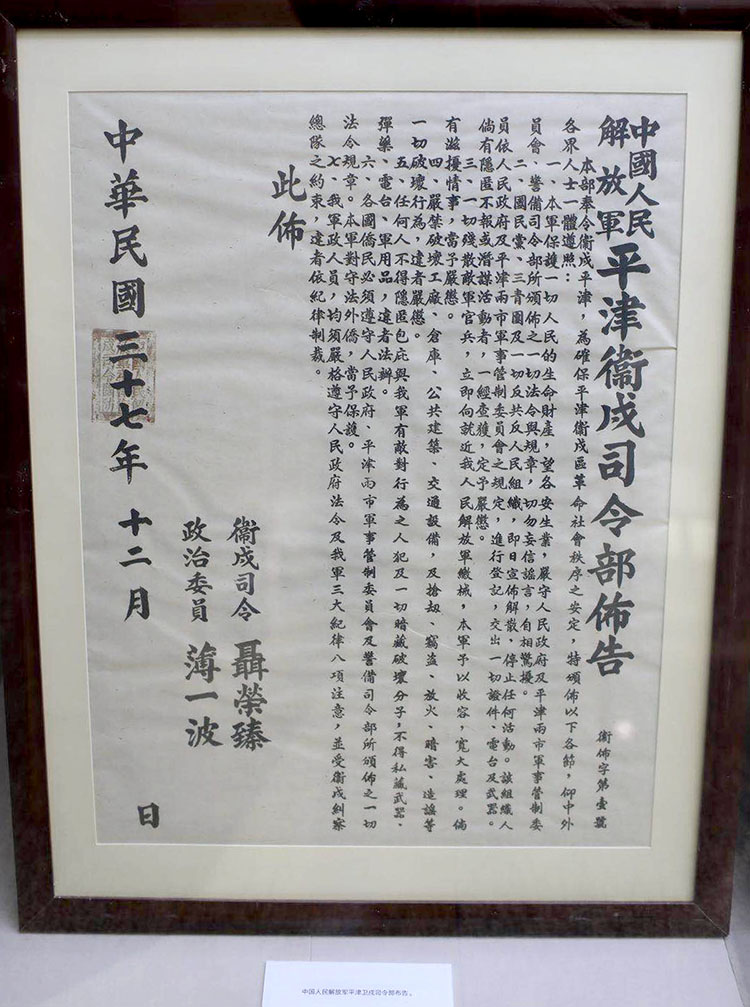 中國人民
解放軍
平津衞戍司令部佈告
衞佈字第壹號
本部奉令衞戍平津，為確保平津衞戍區革命社會秩序之安定，特頒佈以下各節，仰中外
各界人士一體遵照：
一、本軍保護一切人民的生命財產，望各安生業，嚴守人民政府及平津兩市軍事管制委
員會、警備司令部所頒佈之一切法令與規章，切勿妄信謠言，自相驚擾。
二、國民黨、三青團及一切反共反人民組織，即日宣佈解散，停止任何活動。該組織人
員依人民政府及平津兩市軍事管制委員會之規定，進行登記，交出一切證件、電台及武器。
倘有隱匿不報或潛謀活動者，一經查獲，定予嚴懲。
三、一切殘散敵軍官兵，立即向就近我人民解放軍繳械，本軍予以收容，寬大處理。倘
有滋擾情事，當予嚴懲。
四、嚴禁破壞工廠、倉庫、公共建築、交通設備，及搶刼、竊盜、放火、暗害、造謠等
一切破壞行為，違者嚴懲。
五、任何人不得隱匿包庇與我軍有敵對行為之人犯及一切暗藏破壞分子，不得私藏武器、
彈藥、電台、軍用品，違者法辦。
六、各國僑民必須遵守人民政府、平津兩市軍事管制委員會及警備司令部所頒佈之一切
法令規章。本軍對守法外僑，當予保護。
七、我軍政人員，均須嚴格遵守人民政府法令及我軍三大紀律八項注意，並受衞戍糾察
總隊之約束，違者依紀律制裁。
此佈
衞戍司令 聶榮臻
政治委員 薄一波
中華民國三十七年十二月 日
中国人民解放军平津卫戍司令部布告。